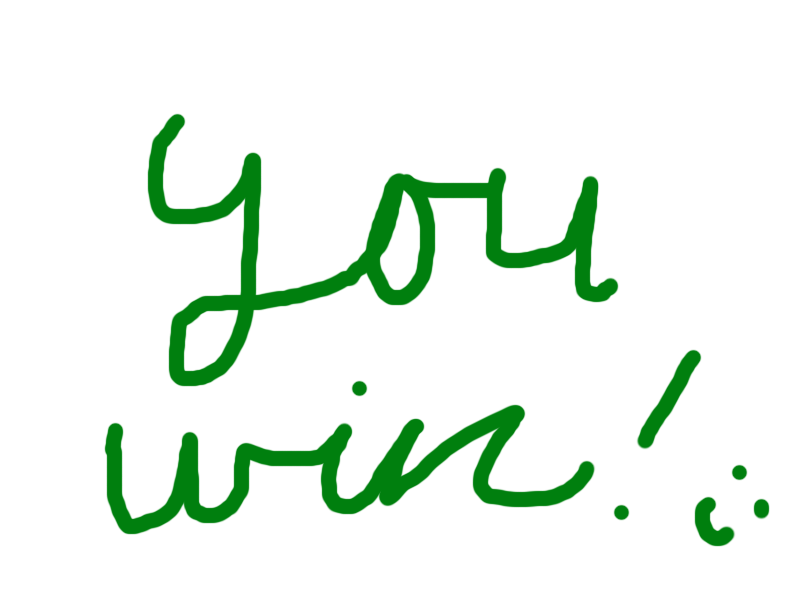 you
win!